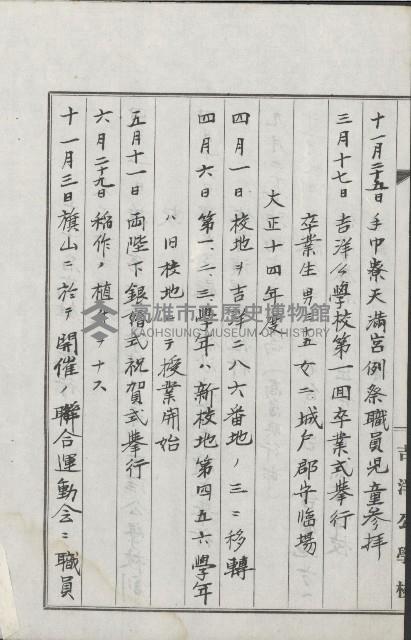 十一月二十五日 手巾寮天滿宮例祭職員児童参拜
三月十七日 吉洋公學校第一回卒業式擧行
卒業生男三五女二城戸郡守臨場
大正十四年度
四月一日 校地ヲ吉洋二八六番地ノ三ニ移轉
四月六日 第一、二、三、學年ハ新校地第四五六學年
ハ旧校地ニテ授業開始
五月十一日 両陛下銀婚式祝賀式擧行
六月二十九日 稲作ノ植付ヲナス
十一月三日 旗山ニ於テ開催ノ聯合運動会ニ職員
吉洋公學校
高雄市立歷史博物館
KAOHSIUNG MUSEUM OF HISTORY